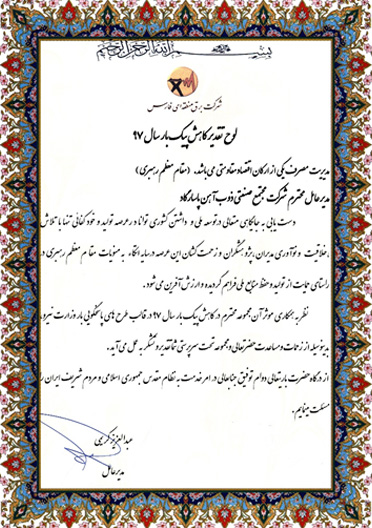 بسم الله الرحمن الرحیم
شرکت برق منطقه ای فارس
لوح تقدیر کاهش پیک بار سال ۹۷
مدیریت مصرف یکی از ارکان اقتصاد مقاومتی می باشد. (مقام معظم رهبری)
مدیر عامل محترم شرکت مجتمع صنعتی ذوب آهن پاسارگاد
دست یابی به جایگاهی متعالی در توسعه ملی و داشتن کشوری توانا در عرصه تولید و خودکفائی تنها با تلاش
، خلاقیت و نوآوری مدیران، پژوهشگران و زحمت کشان این عرصه در سایه اتکاء به منویات مقام معظم رهبری در
راستای حمایت از تولید و حفظ منابع ملی فراهم گردیده و ارزش آفرین می شود.
نظر به همکاری موثر آن مجموعه محترم در کاهش پیک بار سال ۹۷ در قالب طرح های پاسخگویی بار وزارت نیرو،
بدینوسیله از زحمات و مساعدت حضرتعالی و مجموعه تحت سرپرستی شما تقدیر و تشکر به عمل می آید.
از درگاه حضرت باریتعالی دوام توفیق جنابعالی در امر خدمت به نظام مقدس جمهوری اسلامی و مردم شریف ایران را
مسئلت می نمایم.
عبدالعزیز کریمی
مدیر عامل